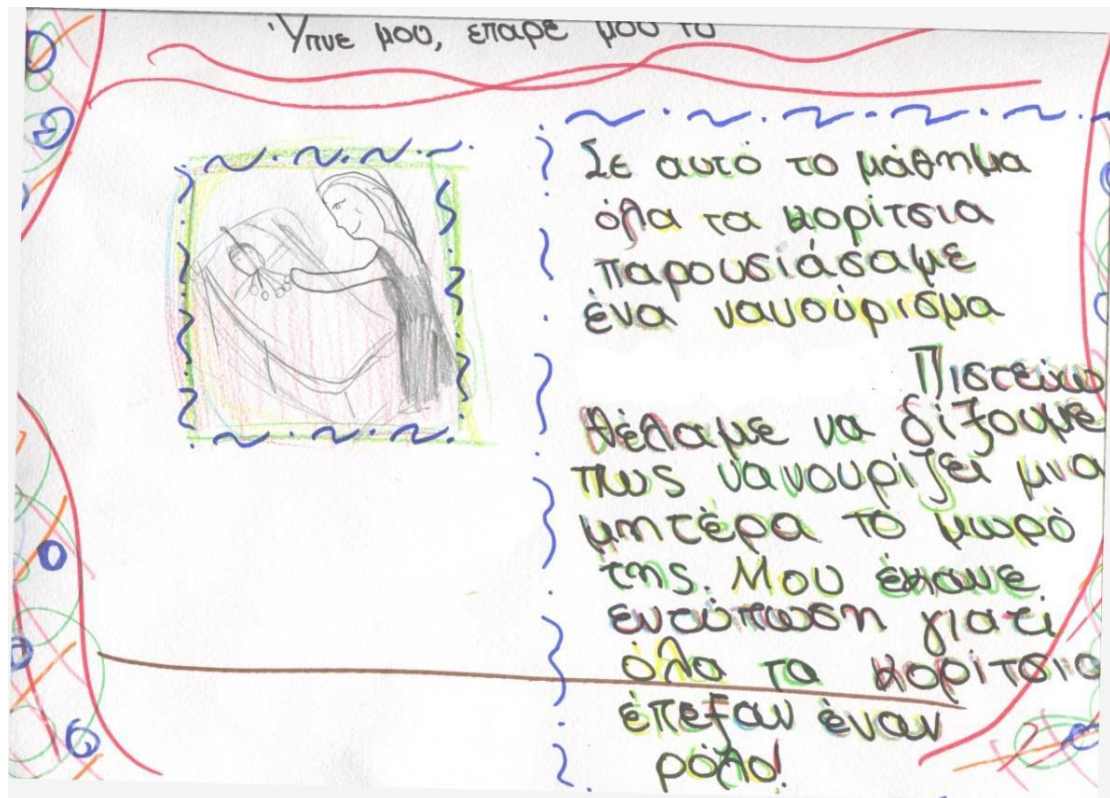 Ύπνε μου, επαρε μου το
Σε αυτό το μάθημα
όλα τα κορίτσια
παρουσιάσαμε
ένα νανούρισμα
Πιστεύω
θέλαμε να δίξουμε
πως νανουρίζει μια
μητέρα το μωρό
της. Μου έκανε
εντύπωση γιατί
όλα τα κορίτσια
έπεξαν έναν
ρόλο!